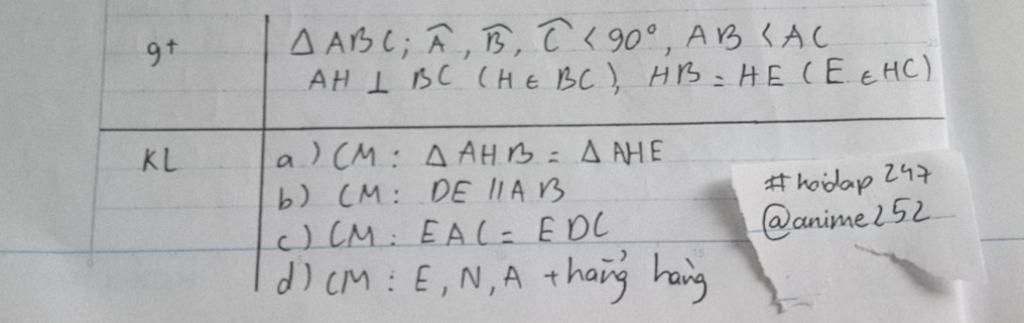 gt
Δ ABC; Â, B̂, Ĉ < 90°, AB < AC
AH ⊥ BC (H ∈ BC), HB = HE (E ∈ HC)
KL
a) CM: Δ AHB = Δ AHE
b) CM: DE // AB
c) CM: EAC = EDC
d) CM: E, N, A thẳng hàng
#hoidap 247
@anime252